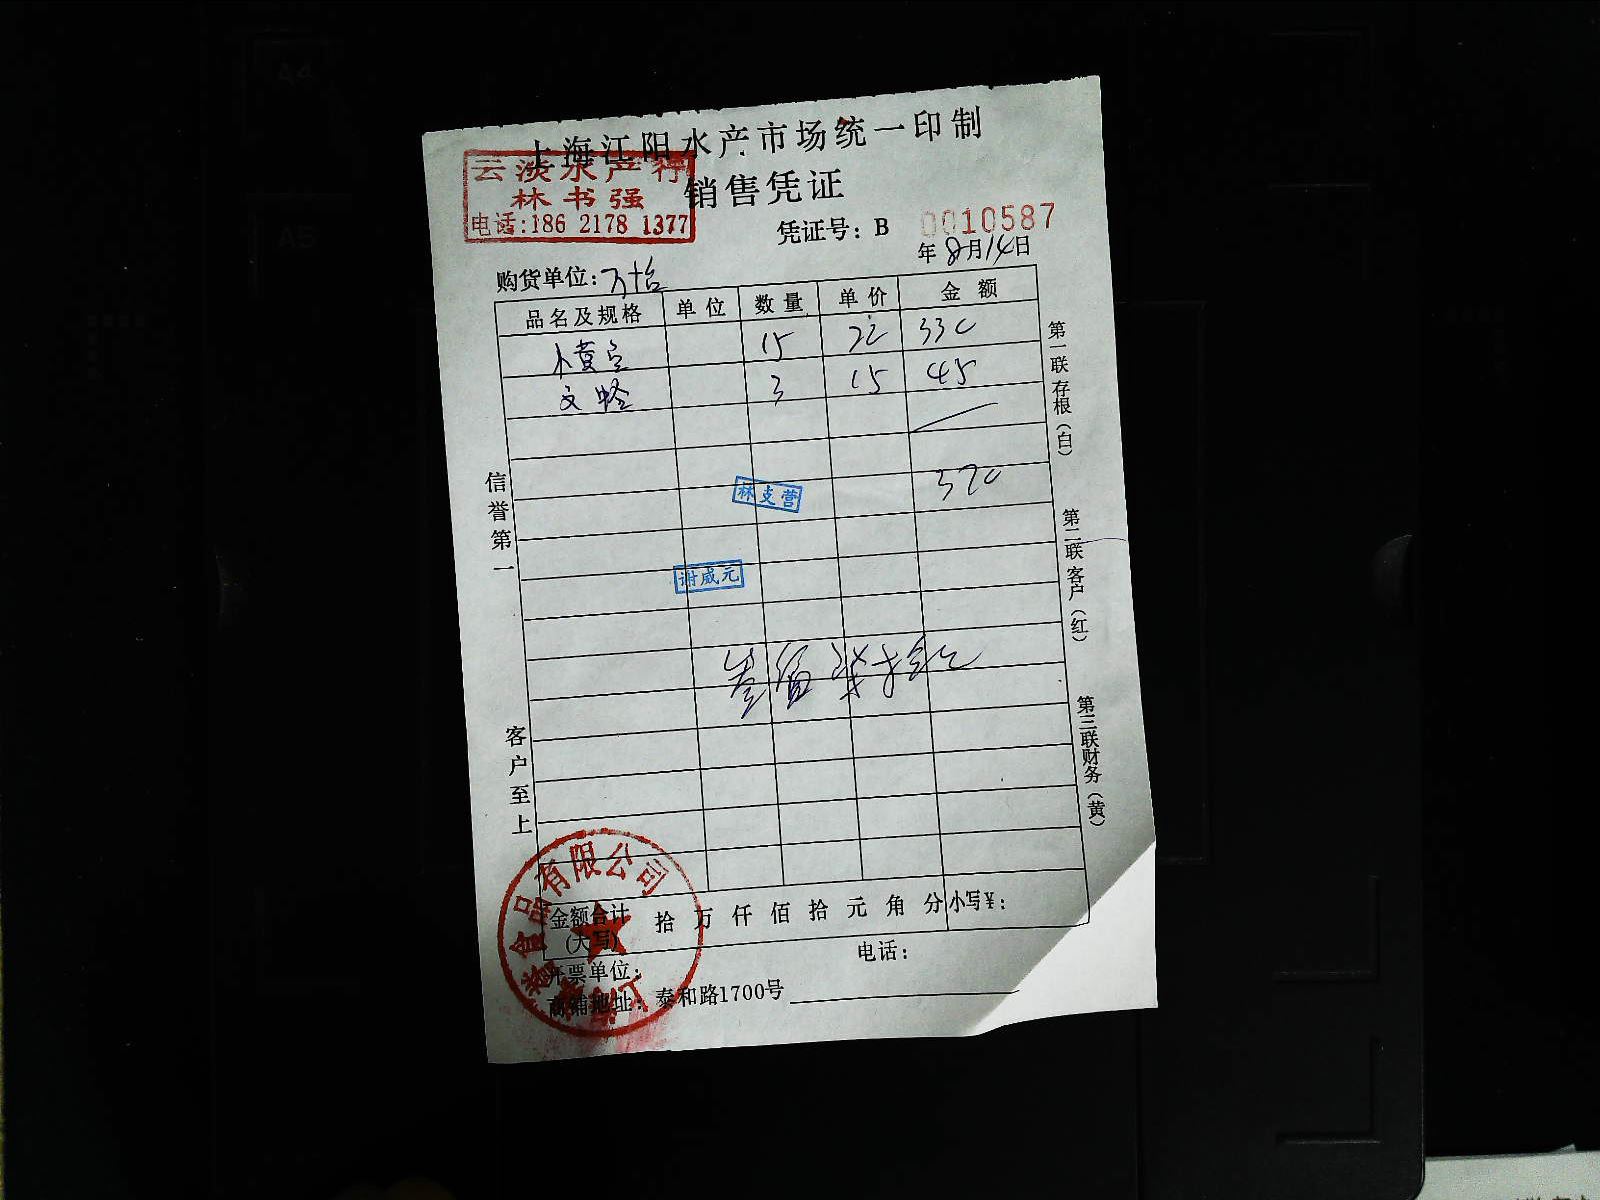 上海江阳水产市场统一印制
云淡水产行
林书强
电话:186 2178 1377
销售凭证
凭证号: B 0010587
年 8月14日
购货单位: 万怡
品名及规格 单位 数量 单价 金额
小黄鱼 15 22 330
文蛤 3 15 45
370
林支营
谢威元
信誉第一
客户至上
第一联存根(白)
第二联客户(红)
第三联财务(黄)
食品有限公司
金额合计(大写) 拾 万 仟 佰 拾 元 角 分 小写¥:
开票单位: 电话:
商铺地址: 泰和路1700号